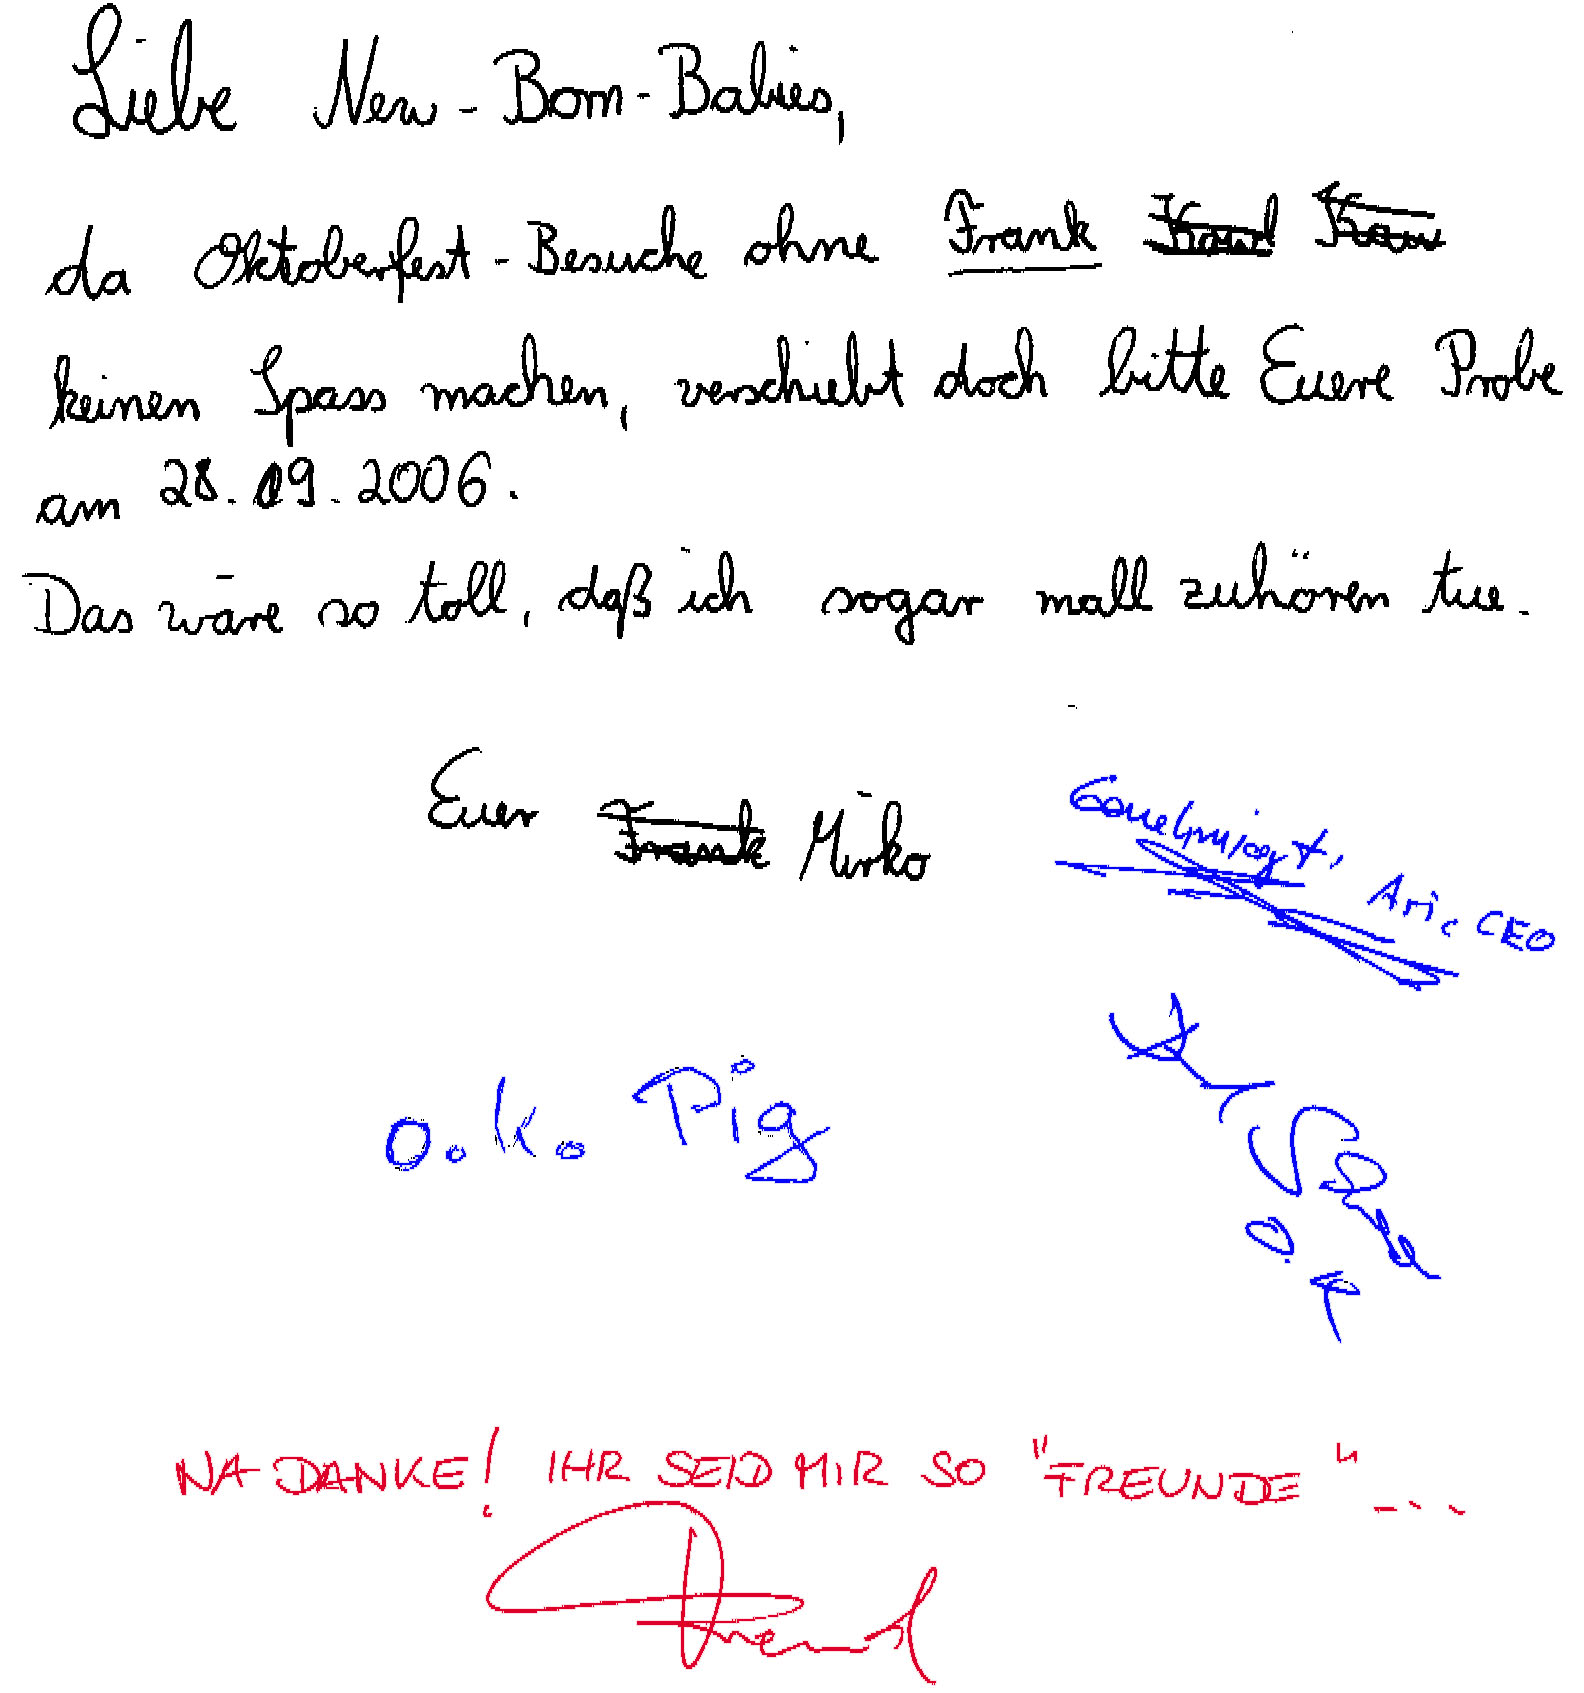 Liebe New-Born-Babies,
da Oktoberfest-Besuche ohne Frank
keinen Spass machen, verschiebt doch bitte Euere Probe
am 28.09.2006.
Das wäre so toll, daß ich sogar mall zuhören tue.
Euer Frank Mirko
Genehmigt,
Ari, CEO
o.k. Pig
O.K
NA DANKE! IHR SEID MIR SO "FREUNDE"...